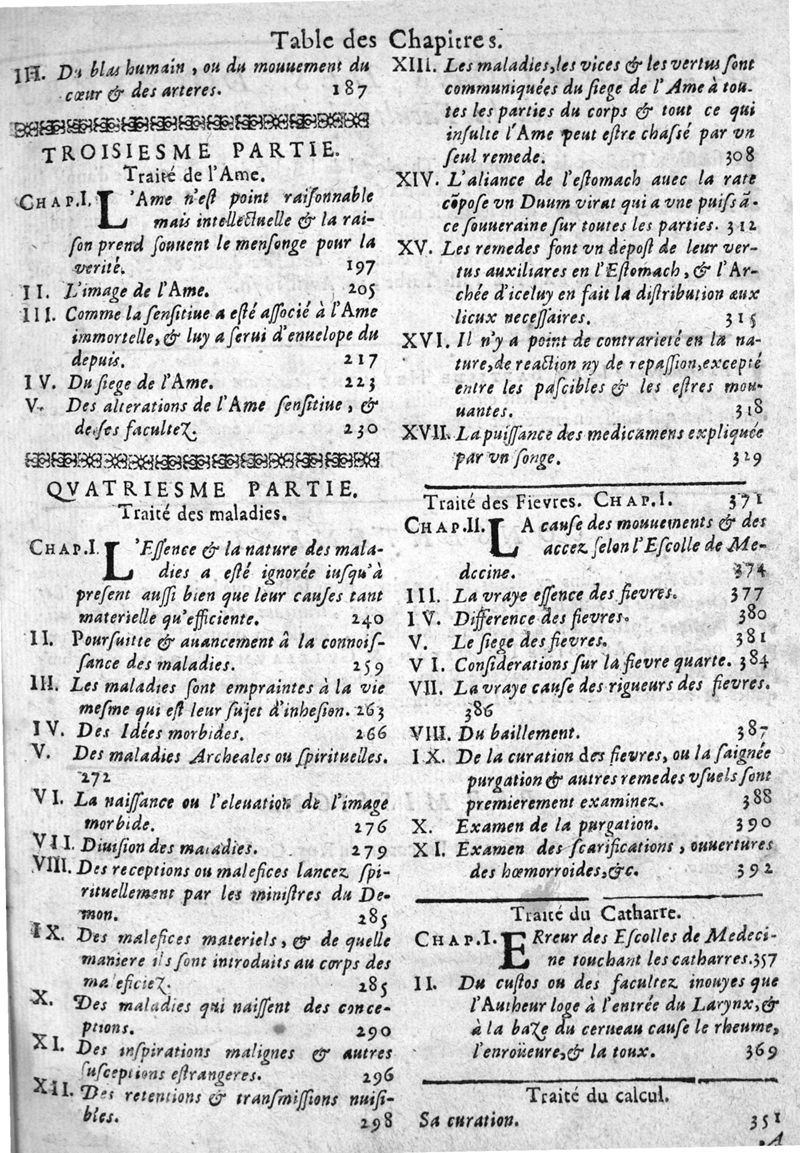 Table des Chapitres.
III. Du blas humain, ou du mouuement du
cœur & des arteres. 187
TROISIESME PARTIE.
Traité de l'Ame.
CHAP.I. L'Ame n'est point raisonnable
mais intellectuelle & la rai-
son prend souuent le mensonge pour la
verité. 197
II. L'image de l'Ame. 205
III. Comme la sensitiue a esté associé à l'Ame
immortelle, & luy a serui d'enuelope du
depuis. 217
IV. Du siege de l'Ame. 223
V. Des alterations de l'Ame sensitiue, &
de ses facultez. 230
QVATRIESME PARTIE.
Traité des maladies.
CHAP.I. L'Essence & la nature des mala-
dies a esté ignorée iusqu'à
present aussi bien que leur causes tant
materielle qu'efficiente. 240
II. Poursuitte & auancement â la connois-
sance des maladies. 259
III. Les maladies sont empraintes à la vie
mesme qui est leur sujet d'inhesion. 263
IV. Des Idées morbides. 266
V. Des maladies Archeales ou spirituelles.
272
VI. La naissance ou l'eleuation de l'image
morbide. 276
VII. Diuision des maladies. 279
VIII. Des receptions ou malefices lancez spi-
rituellement par les ministres du De-
mon. 285
IX. Des malefices materiels, & de quelle
maniere ils sont introduits au corps des
maleficiez. 285
X. Des maladies qui naissent des conce-
ptions. 290
XI. Des inspirations malignes & autres
susceptions estrangeres. 296
XII. Des retentions & transmissions nuisi-
bles. 298
XIII. Les maladies, les vices & les vertus sont
communiquées du siege de l'Ame à tou-
tes les parties du corps & tout ce qui
insulte l'Ame peut estre chassé par vn
seul remede. 308
XIV. L'aliance de l'estomach auec la rate
cõpose vn Duum virat qui a vne puissã-
ce souueraine sur toutes les parties. 312
XV. Les remedes font vn depost de leur ver-
tus auxiliares en l'Estomach, & l'Ar-
chée d'iceluy en fait la distribution aux
lieux necessaires. 315
XVI. Il n'y a point de contrarieté en la na-
ture, de reaction ny de repassion, excepté
entre les pascibles & les estres mou-
uantes. 318
XVII. La puissance des medicamens expliquée
par vn songe. 329
Traité des Fievres. CHAP.I. 371
CHAP.II. LA cause des mouuements & des
accez selon l'Escolle de Me-
deccine. 374
III. La vraye essence des fievres. 377
IV. Difference des fievres. 380
V. Le siege des fievres. 381
VI. Considerations sur la fievre quarte. 384
VII. La vraye cause des rigueurs des fievres.
386
VIII. Du baillement. 387
IX. De la curation des fievres, ou la saignée
purgation & autres remedes vsuels sont
premierement examinez. 388
X. Examen de la purgation. 390
XI. Examen des scarifications, ouuertures
des hœmorroides, &c. 392
Traité du Catharre.
CHAP.I. ERreur des Escolles de Medeci-
ne touchant les catharres. 357
II. Du custos ou des facultez inouyes que
l'Autheur loge à l'entrée du Larynx, &
à la baze du cerueau cause le rheume,
l'enroüeure, & la toux. 369
Traité du calcul.
Sa curation. 351